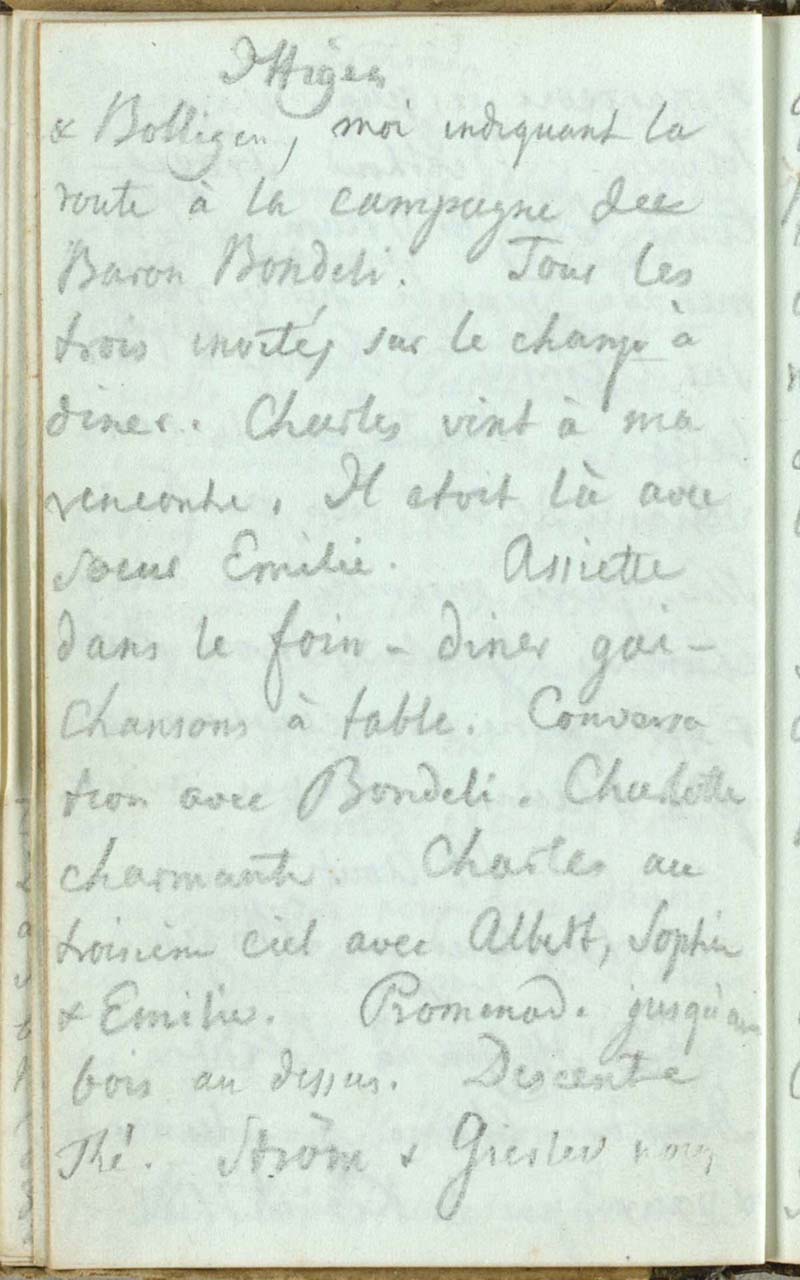 Ittigen
& Bolligen, moi indiquant la
route à la campagne de
Baron Bondeli. Tous les
trois invités sur le champ à
diner. Charles vint à ma
rencontre. Il etoit là avec
soeur Emilie. Assiette
dans le foin - diner gai -
Chansons à table. Conversa
tion avec Bondeli. Charlotte
charmante. Charles au
troisième ciel avec Albert, Sophie
& Emilie. Promenade jusqu'au
bois au dessus. Descente
Thé. Ström & nous